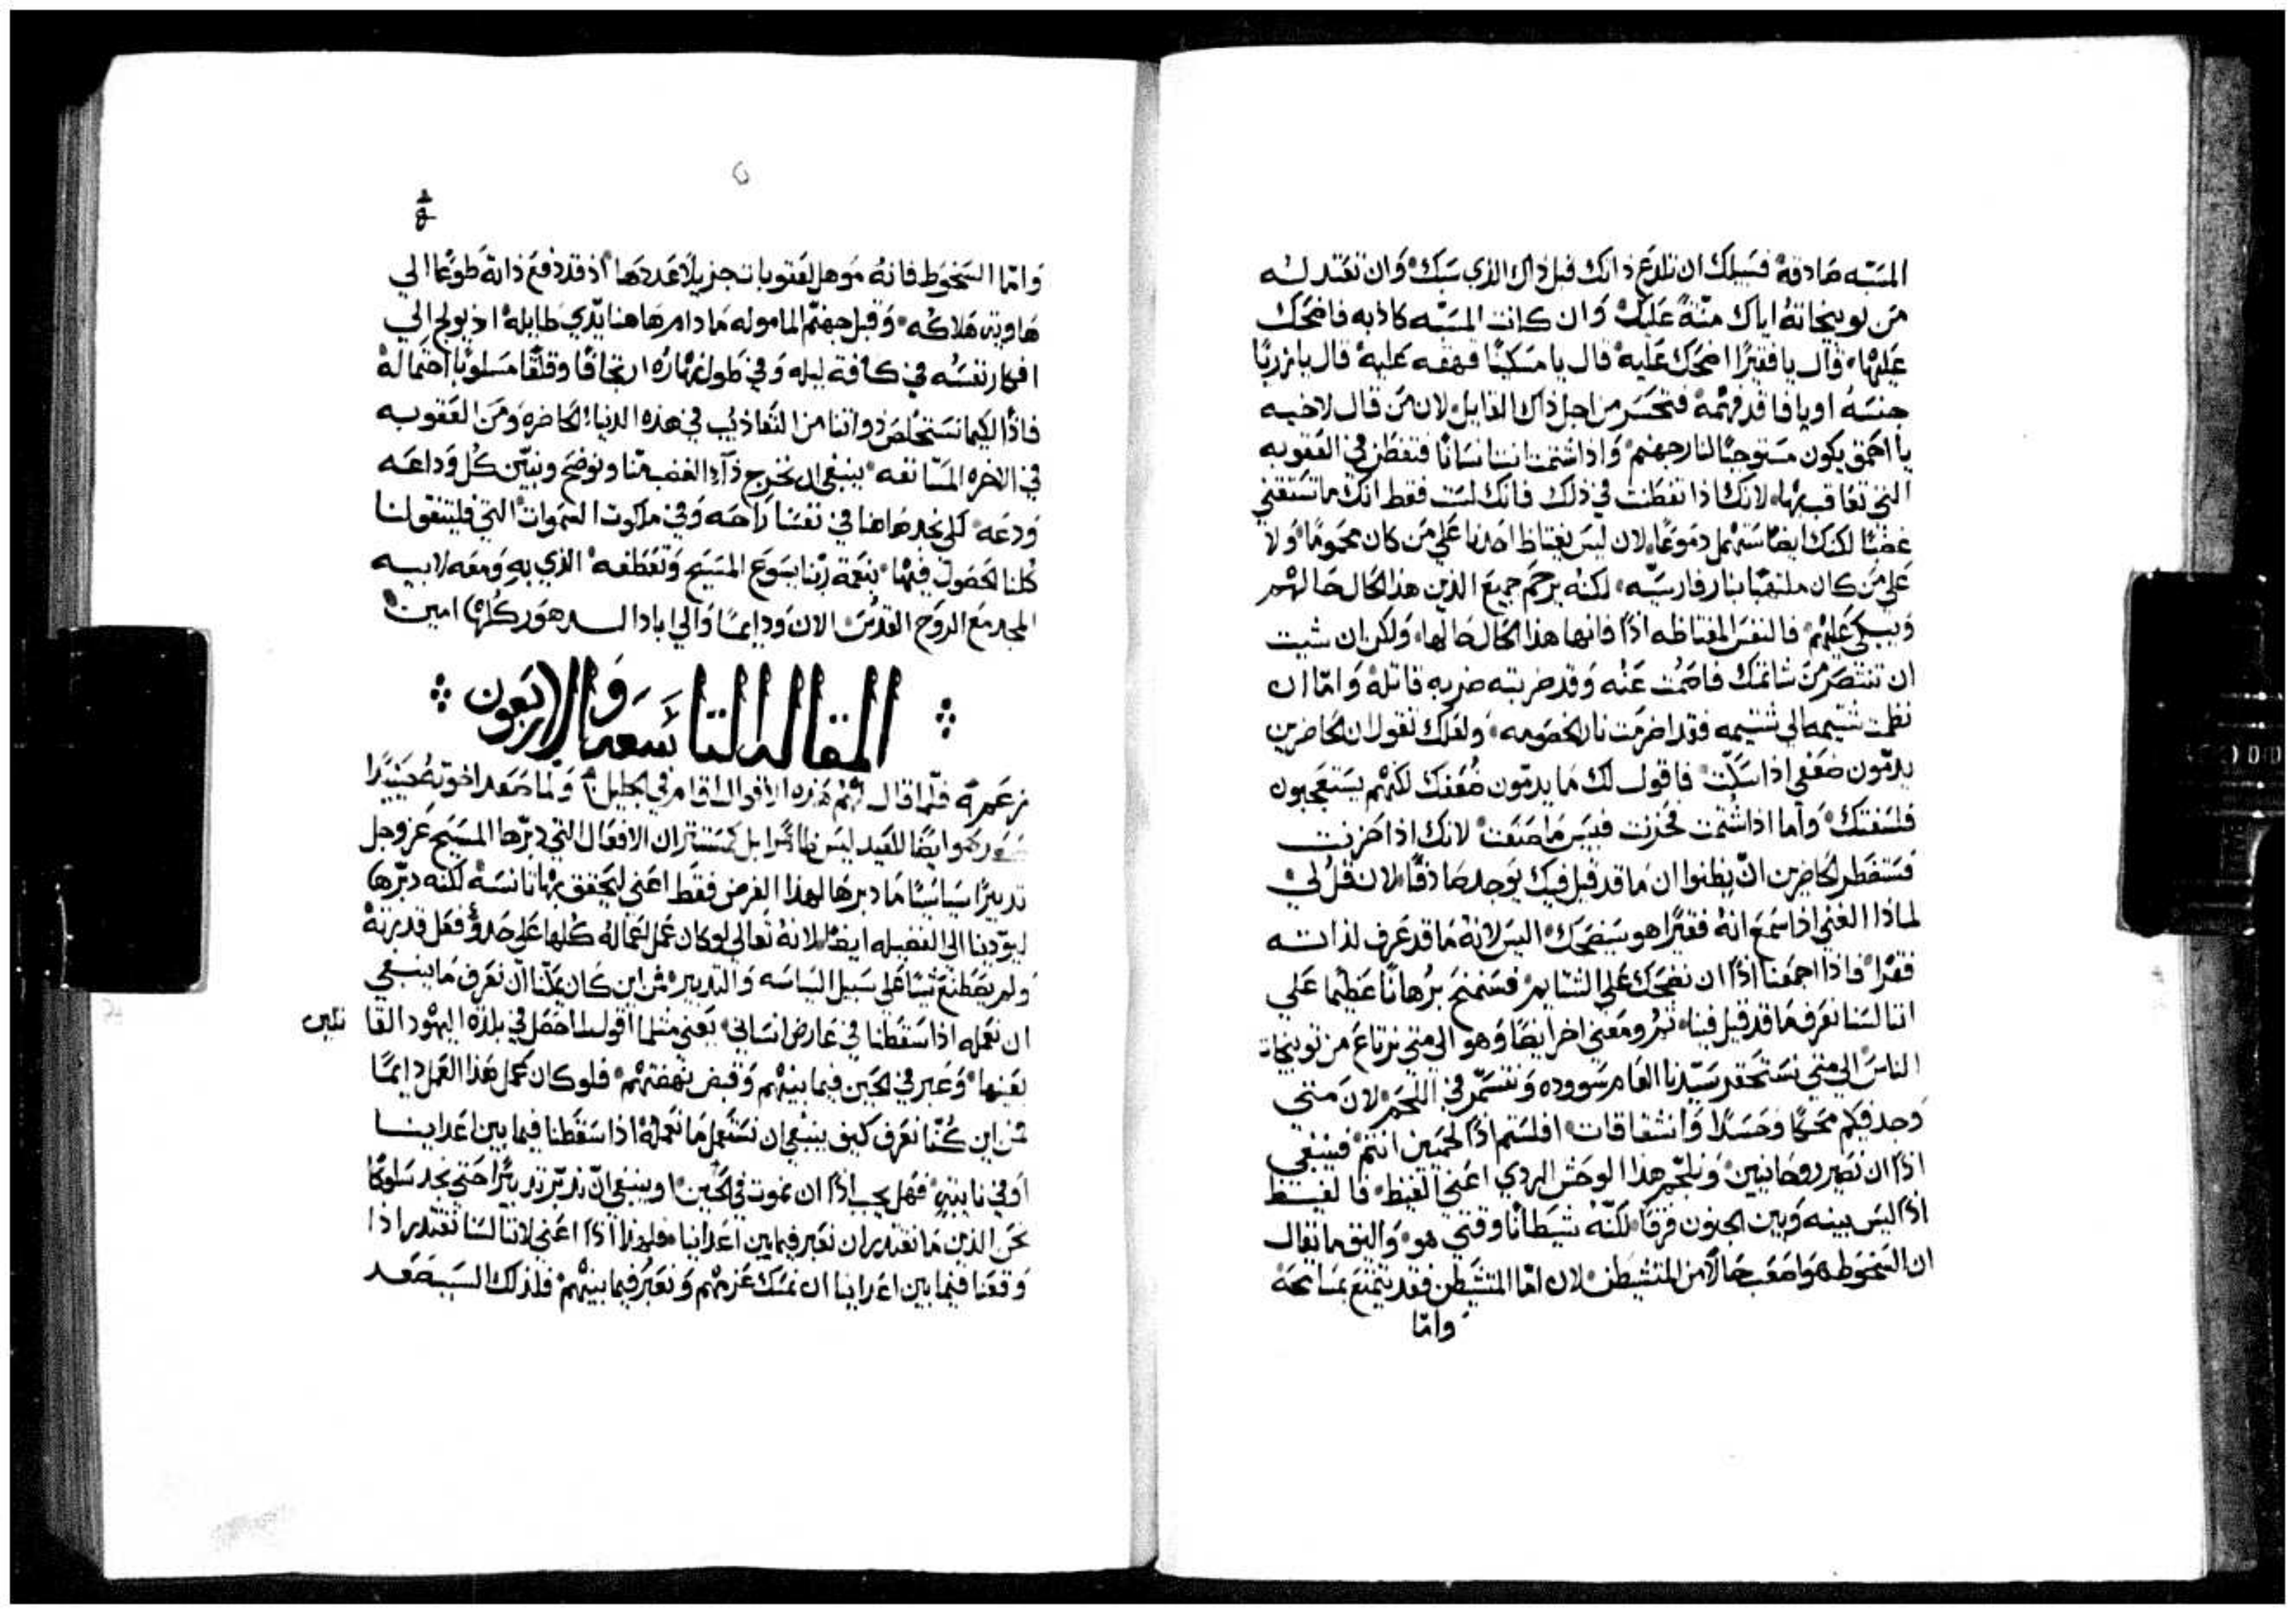 المسبّه صادقة فسبيلك ان تلدع ذاتك قبل ذاك الذي سبك وان تعتد له
من توبيخاته اياك منّةً عليك وان كانت المسبّه كاذبه فاضحك
عليها قال يا فقيرًا اضحك عليه قال يا مسكينًا قهقه عليه قال يا مزريًا
جنسه او يا فاقد فهمه فتحسر من اجل ذاك القايل لان من قال لاخيه
يا احمق يكون مستوجبًا لنار جهنم واذا شتمت انسانًا فتفطن في العقوبه
التي تعاقب بها لانك اذا تفطنت في ذلك فانك لست فقط انك ما تستقني
غضبًا لكنك ايضًا ستهمل دموعًا لان ليس يغتاظ احدنا علي من كان محمومًا ولا
علي من كان ملتهبًا بنار فارسيّه لكنه يرحم جميع الذين هذا الحال حالهم
ويبكي عليهم فالنفس المغتاظه اذًا فانها هذا الحال حالها ولكن ان شيت
ان تنتصر من شاتمك فاصمت عنه وقد ضربته ضربه قاتلة وامّا ان
نظمت شتيمه الي شتيمه فقد اضرمت نار الخصومه ولعلك تقول ان الحاضرين
يدمّون ضعفي اذا سكتّ فاقول لك ما يدمّون ضعفك لكنهم يستعجبون
فلسفتك واما اذا شُتمت فحزنت فبيس ما صنعت لانك اذا حزنت
فستضطر الحاضرين ان يظنوا ان ما قد قيل فيك يوجد صادقًا لان قل لي
لماذا الغني اذا سمع انه فقيرًا هو يتضحك اليس لانه ما قد عرف لذاته
فقرًا فاذا اجمعنا اذًا ان نضحك علي الشتايم فسنمنح برهانًا عظيمًا علي
اننا لسنا نعرف ما قد قيل فينا ثم ومعني اخر ايضًا وهو الي متي نرتاع من توبيخات
الناس الي متي نستحقر سيّدنا العام سووده ونتسمّر في اللحم لان متي
وجد فيكم محكًا وحسدًا وانشقاقات افلستم اذًا لحميين انتم فينبغي
اذًا ان نصير روحانيين ونلجّم هذا الوحش الردي اعني الغيظ فالغيظ
اذًا ليس بينه وبين الجنون فرقًا لكنّه شيطانًا وقتي هو واليق ما يقال
ان السخوط هو اصعب حالًا من المتشيطن لان امّا المتشيطن فقد يتمتع بمسامحة
وامّا
وامّا السخوط فانه موهل لعقوبات جزيل عددها اذ قد دفع ذاته طوعًا الي
هاوية هلاكه وقبل جهنّم المامولة ما دام هاهنا يدّي طايلة اذ يولج الي
افكار نفسه في كافة ليله وفي طول نهاره ارتجافًا وقلقًا مسلوبًا احتماله
فاذًا لكيما نستخلص ذواتنا من التعاذيب في هذه الدنيا الحاضرة ومن العقوبه
في الاخره المسّانفه ينبغي ان نخرج ذآ الغضب منّا ونوضح ونبيّن كل وداعه
ودعه لكي نجد هاهنا في نفسنا راحه وفي ملكوت السموات التي فليتفق لنا
كلنا الحصول فيها بنعمة ربّنا يسوع المسيح وتعطفه الذي به ومعه لابيه
المجد مع الروح القدس الان ودايمًا والي اباد الدهور كلها امين
المقاله التاسعه والاربعون
فلمّا قال لهم هذه الاقوال اقام في الجليل ولما صعد اخوته حينيذًا
صعد هو ايضًا للعيد ليس ظاهرًا بل كمستتر ان الافعال التي دبّرها المسيح عز وجل
تدبيرًا سياسيًا ما دبرها لهذا الغرض فقط اعني ليحقق بها تانسه لكنه دبّرها
ليودّينا الي الفضيله ايضًا لانه تعالي لو كان عمل اعماله كلها علي حدو فعل قدرته
ولم يصطنع شيًا علي سبيل السياسه والتدبير من اين كان يمكّنا ان نعرف ما ينبغي
ان نعمله اذا سقطنا في عارض انساني يعني مثلما اقول لما حصل في بلدة اليهود القا
تلين
بعينها وعبر في الحين فيما بينهم وقبض نهضتهم فلو كان عمل هذا العمل دايمًا
من اين كنّا نعرف كيف ينبغي ان نستعمل ما نعمله اذا سقطنا فيما بين اعداينا
او في نايبه فهل يجب اذًا ان نموت في الحين او ينبغي ان ندبّر تدبيرًا حتي نجد سلوكًا
نحن الذين ما نقتدر ان نعبر فيما بين اعداينا فلهذا اذًا اعني لاننا لسنا نقتدر اذا
وقعنا فيما بين اعداينا ان نمسك عزمهم ونعبر فيما بينهم فلذلك السبب صعد